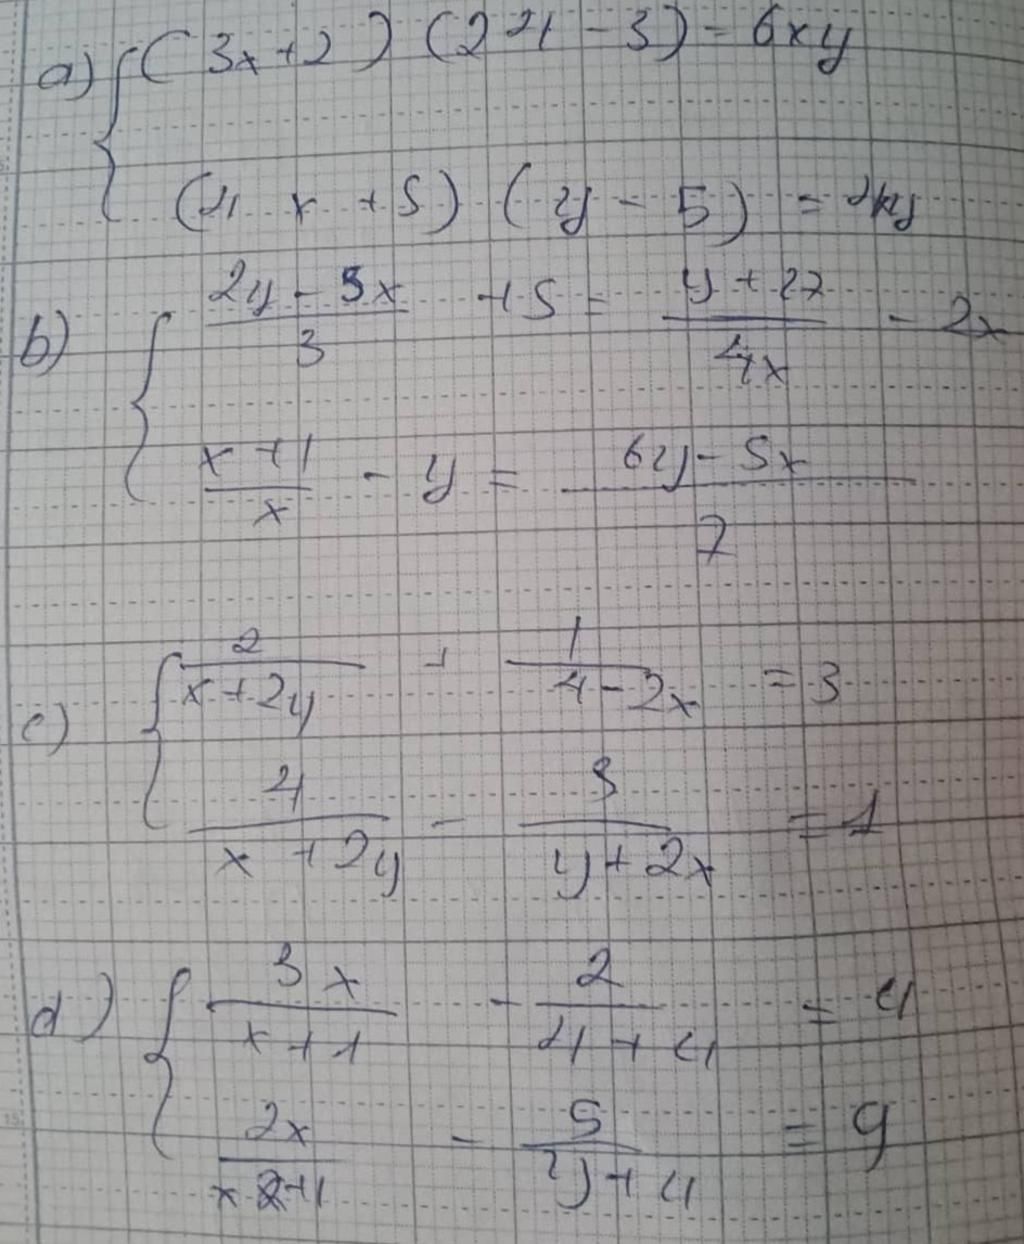 a) { (3x+2) (24-3) = 6xy
(4x+5) (y-5) = 4xy
b) { \frac{2y-5x}{3} + 5 = \frac{y+27}{4x} - 2x
\frac{x+1}{x} - y = \frac{6y-5x}{7}
c) { \frac{2}{x+2y} + \frac{1}{4-2x} = 3
\frac{4}{x+2y} - \frac{3}{y+2x} = 1
d) { \frac{3x}{x+1} - \frac{2}{4+4} = 4
\frac{2x}{x+1} - \frac{5}{y+4} = 9